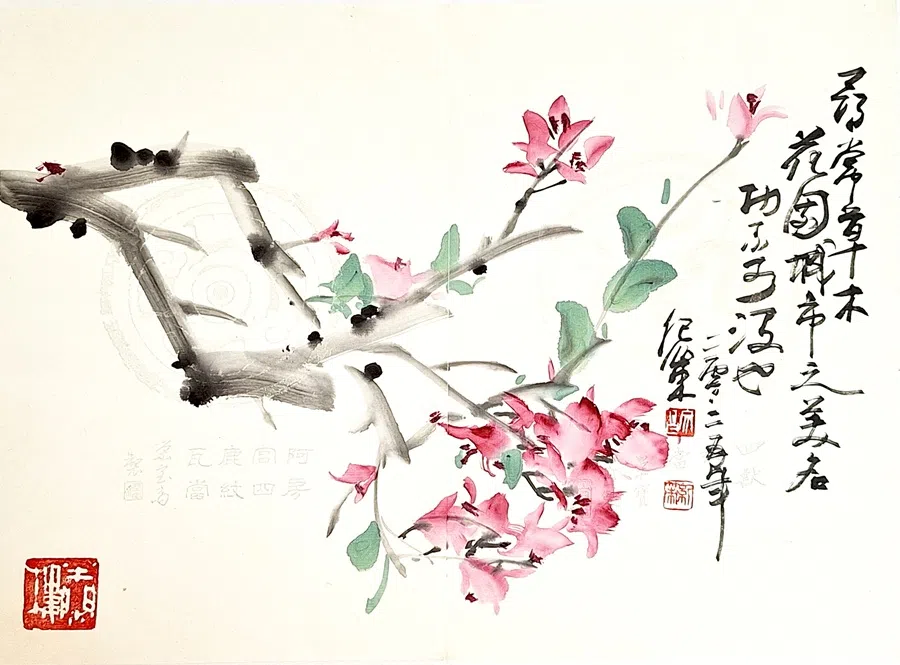 尋常草木
花園城市之美名
功不可没也
二零二五年
阿房
宮四
鹿紋
瓦當